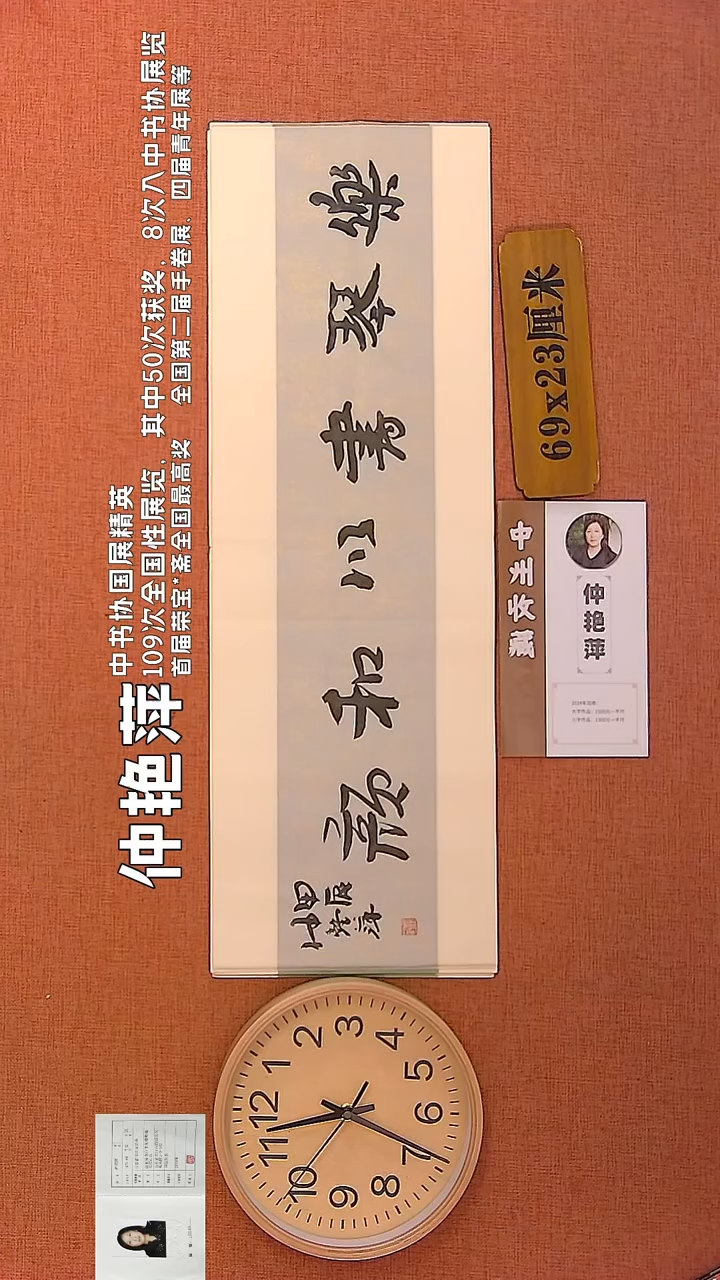 仲艳萍
中书协国展精英
109次全国性展览，其中50次获奖，8次入中书协展览
首届荣宝*斋全国最高奖 全国第二届手卷展、四届青年展等
樂琴書以和顏
甲辰
仲艳萍
69x23厘米
仲艳萍
12
1
2
3
4
5
6
7
8
9
10
11